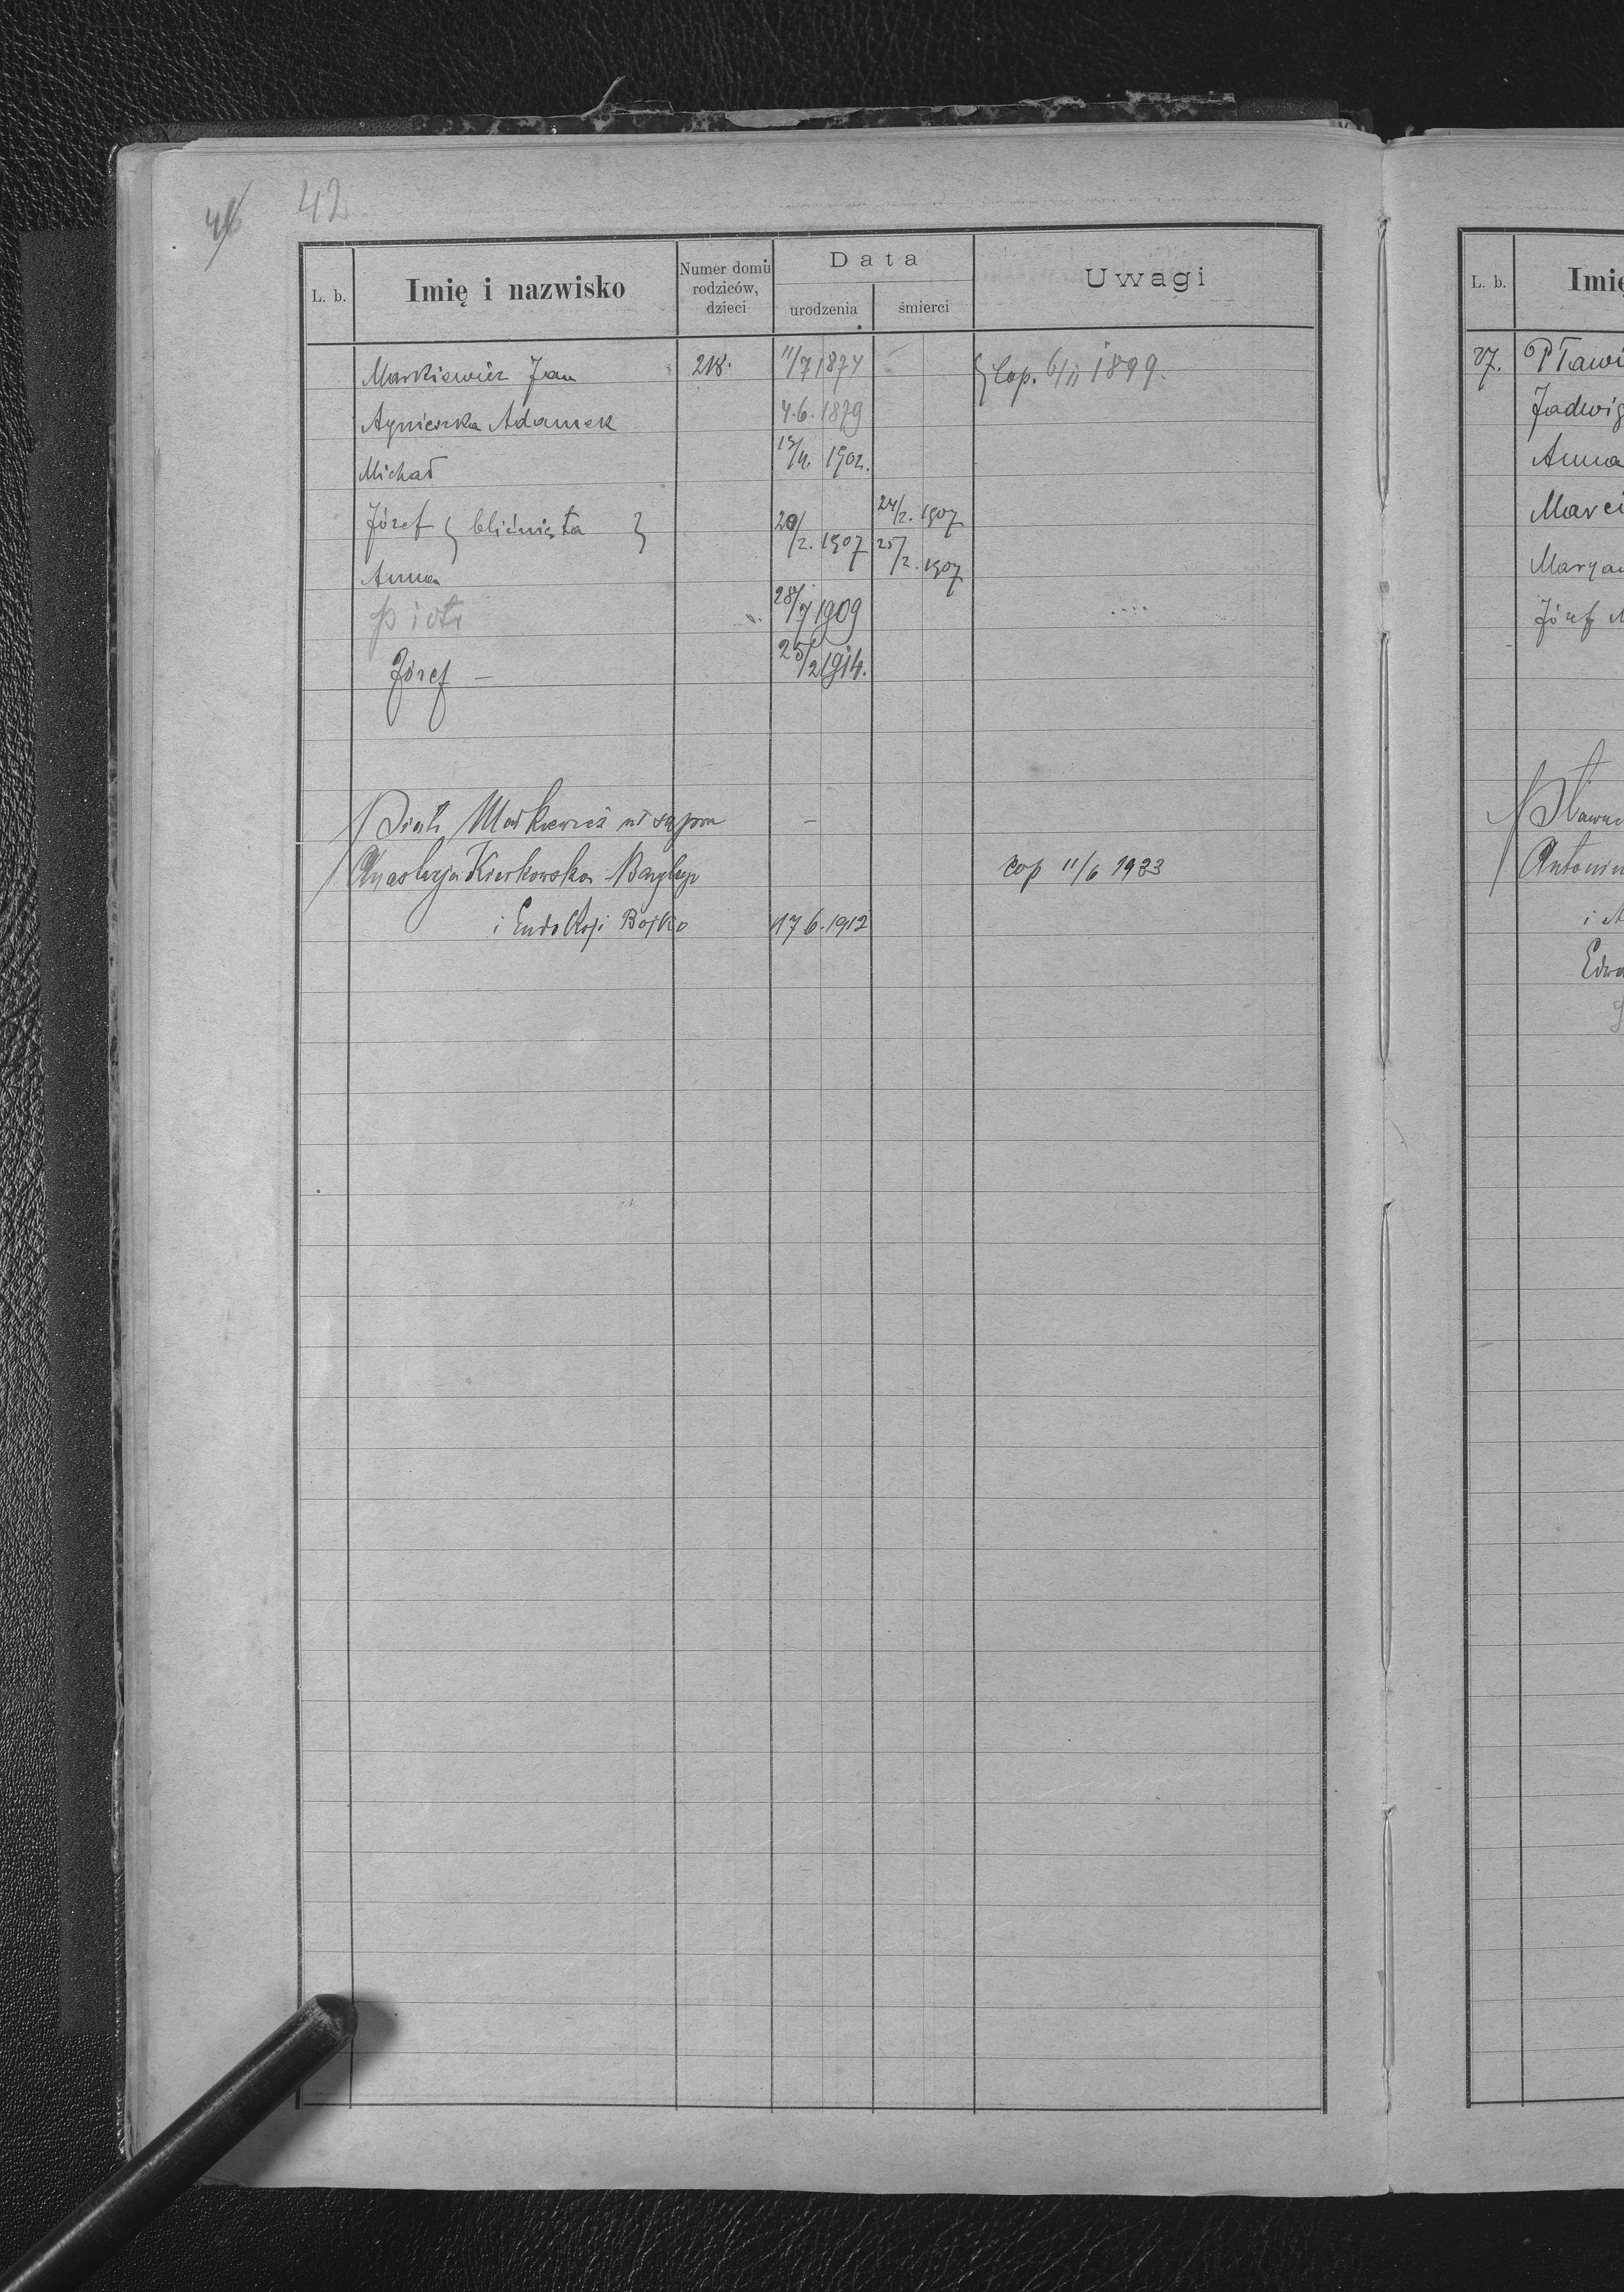 46 42
L. b. Imię i nazwisko Numer domu rodziców, dzieci Data urodzenia śmierci Uwagi
Markiewicz Jan 218. 11/7 1874 Cop. 6/11 1899.
Agnieszka Adamek 4.6.1879
Michał 1902.
Józef } bliźnięta } 20/2. 1907 24/2. 1907
Anna 25/2. 1907
Piotr 28/7 1909
Józef — 25/2 1914.
Piotr Markiewicz —
Anastazja Kierkowska cop 11/6 1933
i Eudoksji Bojko 17 6.1912
L. b. Imię
27. Pławi
Jadwig
Anna
Marci
Marya
Józef
Antonin
i
Edwa